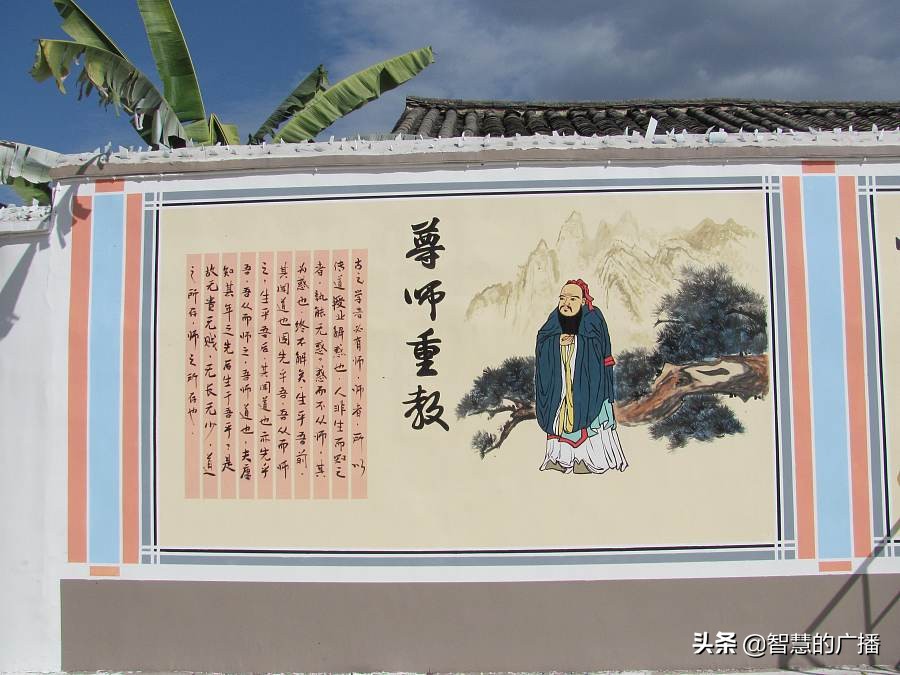 尊师重教
古之学者必有师。师者，所以
传道授业解惑也。人非生而知之
者，孰能无惑。惑而不从师，其
为惑也，终不解矣。生乎吾前，
其闻道也固先乎吾，吾从而师
之，生乎吾后，其闻道也亦先乎
吾，吾从而师之，吾师道也，夫庸
知其年之先后生于吾乎，是
故无贵无贱，无长无少，道
之所存，师之所存也。
头条 @智慧的广播